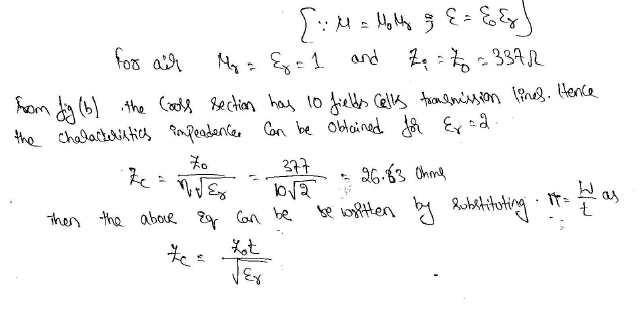 [∵ μ = μ₀μᵣ ; ε = ε₀εᵣ]
for air μᵣ = εᵣ = 1 and Zᵢ = Z₀ = 337Ω
from fig (b) the Cross Section has 10 fields Cells transmission lines. Hence
the characteristics impeadences Can be obtained for εᵣ = 2.
Z_c = Z₀ / n√εᵣ = 377 / 10√2 = 26.63 Ohms
Then the above Eq Can be be written by substituting n = W/t as
Z_c = Z₀t / √εᵣ